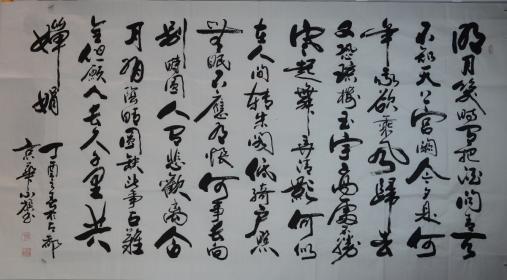 明月幾時有把酒問青天
不知天上宮闕今夕是何
年我欲乘風歸去
又恐瓊樓玉宇高處不勝
寒起舞弄清影何似
在人間轉朱閣低綺戶照
無眠不應有恨何事長向
別時圓人有悲歡離合
月有陰晴圓缺此事古難
全但願人長久千里共
嬋娟
丁酉之春於古都
京華